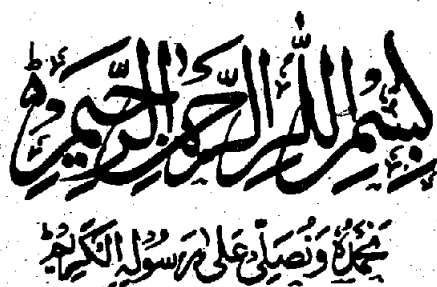 بِسْمِ اللهِ الرَّحْمٰنِ الرَّحِيْمِ
نَحْمَدُهٗ وَنُصَلِّیْ عَلٰی رَسُوْلِهِ الْکَرِیْمِ